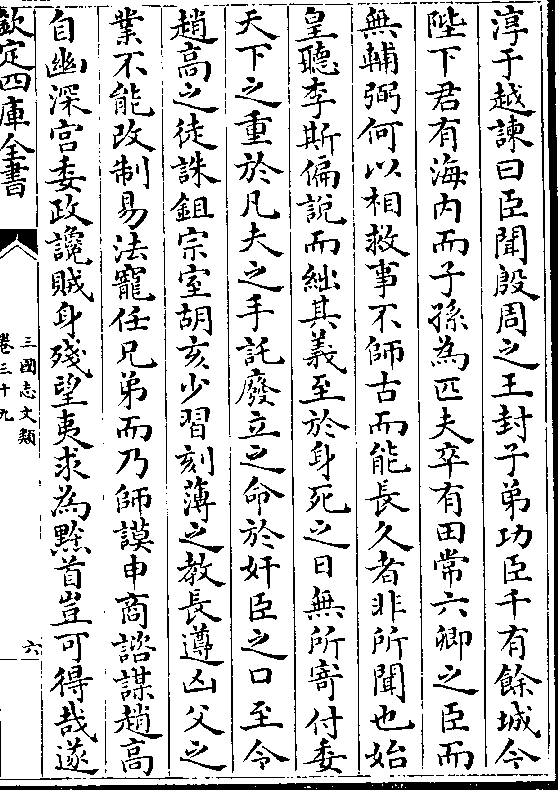 淳于越諫曰臣聞殷周之王封子弟功臣千有餘城今
陛下君有海内而子孫為匹夫卒有田常六卿之臣而
無輔弼何以相救事不師古而能長久者非所聞也始
皇聽李斯偏說而絀其義至於身死之日無所寄付委
天下之重於凡夫之手託廢立之命於奸臣之口至令
趙高之徒誅鉏宗室胡亥少習刻薄之教長遵凶父之
業不能改制易法寵任兄弟而乃師謨申商諮謀趙高
自幽深宫委政讒賊身殘望夷求為黔首豈可得哉遂
欽定四庫全書
三國志文類
卷三十九
六